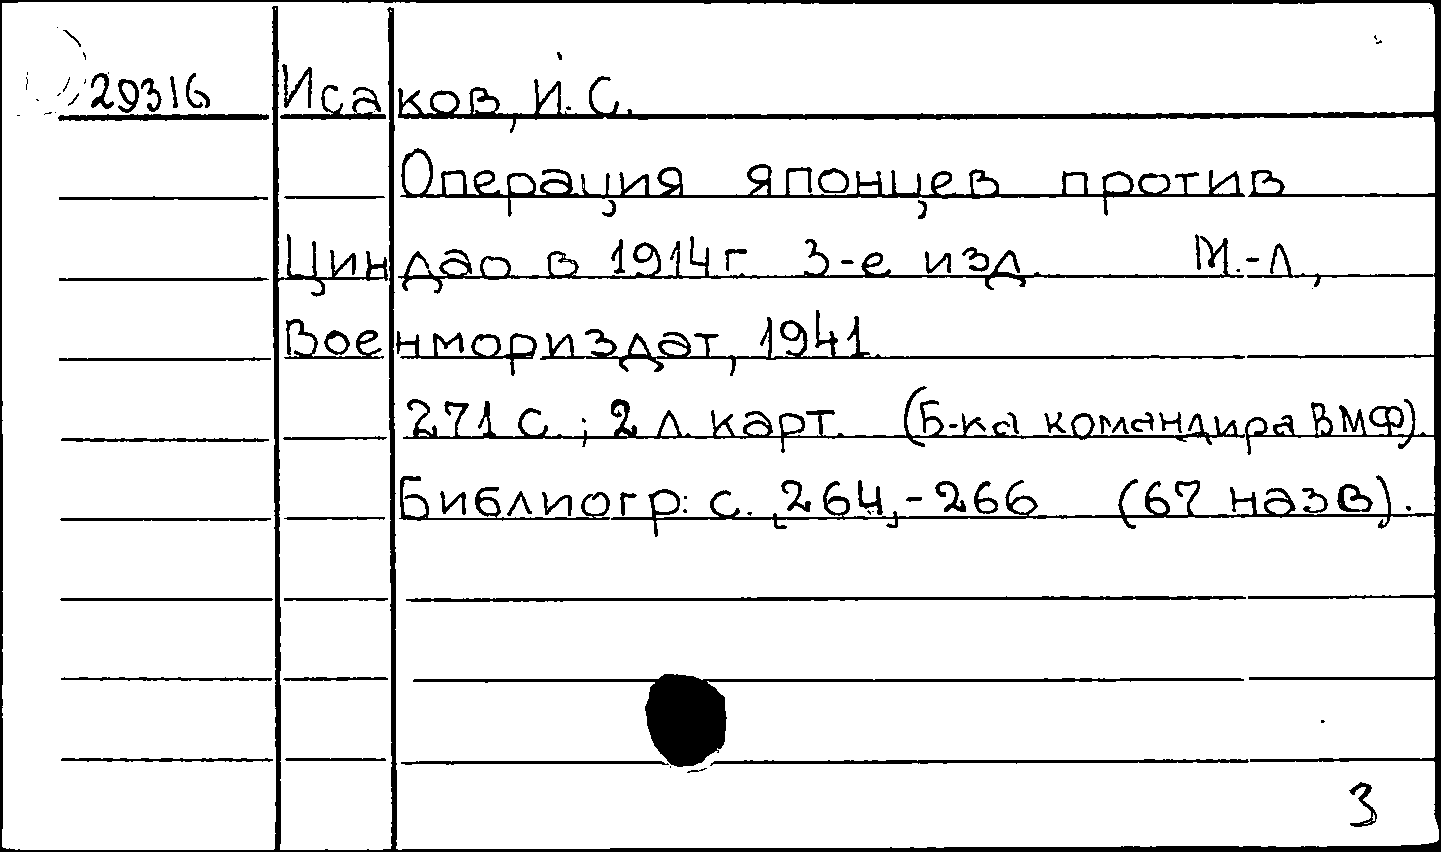 29316 Исаков, И. С.
Операция японцев против
Циндао в 1914 г. 3-е изд. М.-Л.,
Военмориздат, 1941.
271 с.; 2 л. карт. (Б-ка командира ВМФ).
Библиогр.: с. [264]-266 (67 назв.).
3